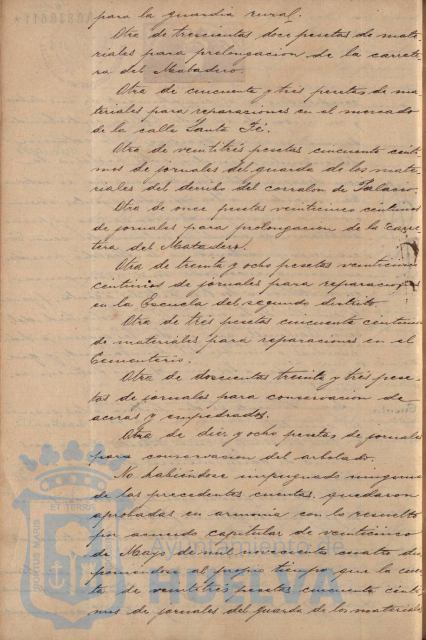 para la guardia rural.
Otra de trescientas doce pesetas de mate-
riales para prolongacion de la carrete-
ra del Matadero.
Otra de cincuenta y tres pesetas de ma-
teriales para reparaciones en el mercado
de la calle Santa Fé.
Otra de veintitrés pesetas cincuenta cénti-
mos de jornales del guarda de los mate-
riales del derribo del corralon de Palacio.
Otra de once pesetas veinticinco céntimos
de jornales para prolongacion de la carre-
tera del Matadero.
Otra de treinta y ocho pesetas veinticinco
centimos de jornales para reparaciones
en la Escuela del segundo distrito
Otra de tres pesetas cincuenta centimos
de materiales para reparaciones en el
Cementerio.
Otra de doscientas treinta y tres pese-
tas de jornales para conservacion de
aceras y empedrados.
Otra de diez y ocho pesetas de jornales
para conservacion del arbolado.
No habiéndose impugnado ninguna
de las precedentes cuentas, quedaron
aprobadas en armonia con lo resuelto
por acuerdo capitular de veinticinco
de Mayo de mil novecientos cuatro dis-
poniendose al propio tiempo que la cuen-
ta de veintitres pesetas cincuenta cénti-
mos de jornales del guarda de los materiales
PORTUS MARIS ET TERRAE
Ayuntamiento de
HUELVA